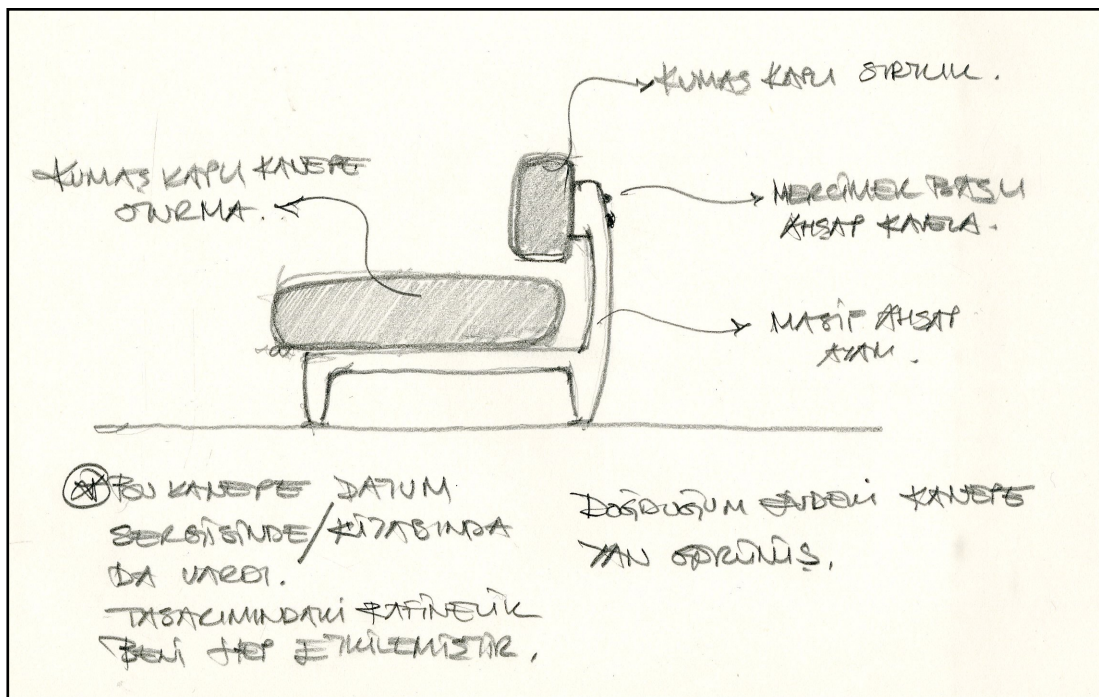 KUMAŞ KAPLI SIRTLIK.
KUMAŞ KAPLI KANEPE
OTURMA.
MERCİMEK BAŞLI
AHŞAP KAVELA.
MASİF AHŞAP
AYAK.
BU KANEPE DATUM
SERGİSİNDE/KİTABINDA
DA VARDI.
TASARIMINDAKİ RAFİNELİK
BENİ HEP ETKİLEMİŞTİR.
DOĞDUĞUM EVDEKİ KANEPE
YAN GÖRÜNÜŞ.